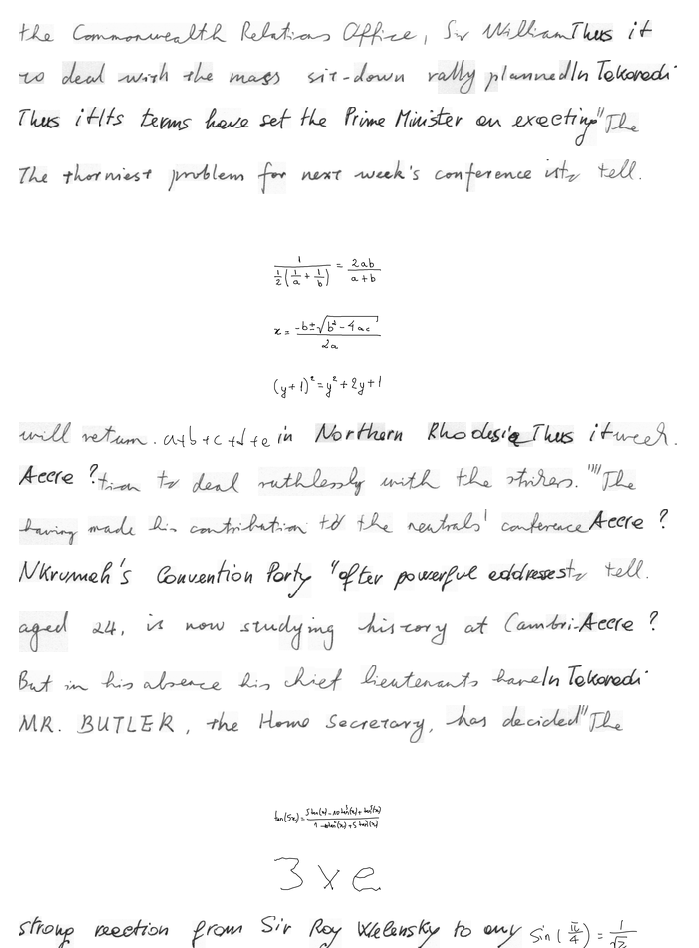 the Commonwealth Relations Office, Sir William Thus it
to deal with the mass sit-down rally planned In Takoradi
Thus it Its terms have set the Prime Minister an exacting "The
The thorniest problem for next week's conference is to tell.
\frac{1}{\frac{1}{2}(\frac{1}{a}+\frac{1}{b})} = \frac{2ab}{a+b}
x = \frac{-b \pm \sqrt{b^2-4ac}}{2a}
(y+1)^2 = y^2+2y+1
will return. a+b+c+d+e in Northern Rhodesia Thus it week.
Accra ? tion to deal ruthlessly with the strikers. "" The
having made his contribution to the neutrals' conference Accra ?
Nkrumah's Convention Party "after powerful addresses to tell.
aged 24, is now studying history at Cambri- Accra ?
But in his absence his chief lieutenants have In Takoradi
MR. BUTLER, the Home Secretary, has decided "The
tan(5x) = \frac{5tan(x)-10tan^3(x)+tan^5(x)}{1-10tan^2(x)+5tan^4(x)}
3 x e
strong reaction from Sir Roy Welensky to any sin(\frac{\pi}{4}) = \frac{1}{\sqrt{2}}